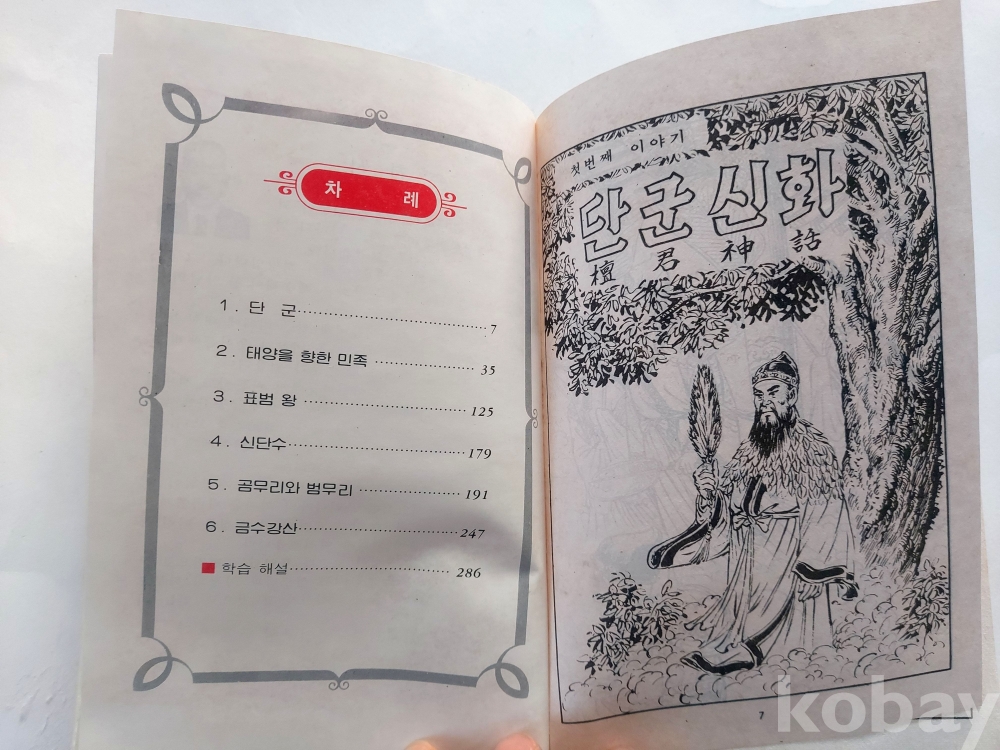 차 례
1. 단 군 7
2. 태양을 향한 민족 35
3. 표범 왕 125
4. 신단수 179
5. 곰무리와 범무리 191
6. 금수강산 247
■ 학습 해설 286
첫번째 이야기
단군신화
檀君神話
7
kobay